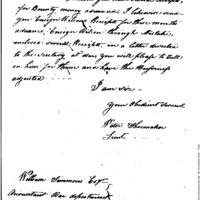 for Bounty money advanced. I likewise send
you Ensign Wilsons Receipts for three months
advance, Ensign Wilson through Mistake
enclosed several Receipts, in a letter directed
to the Secretary at War you will please to Call
on him for them and have this Business
adjusted
I am Sir
Your Obedient Servant
Peter Shoemaker
Lieut
William Simmons Esqr
Accountant War department